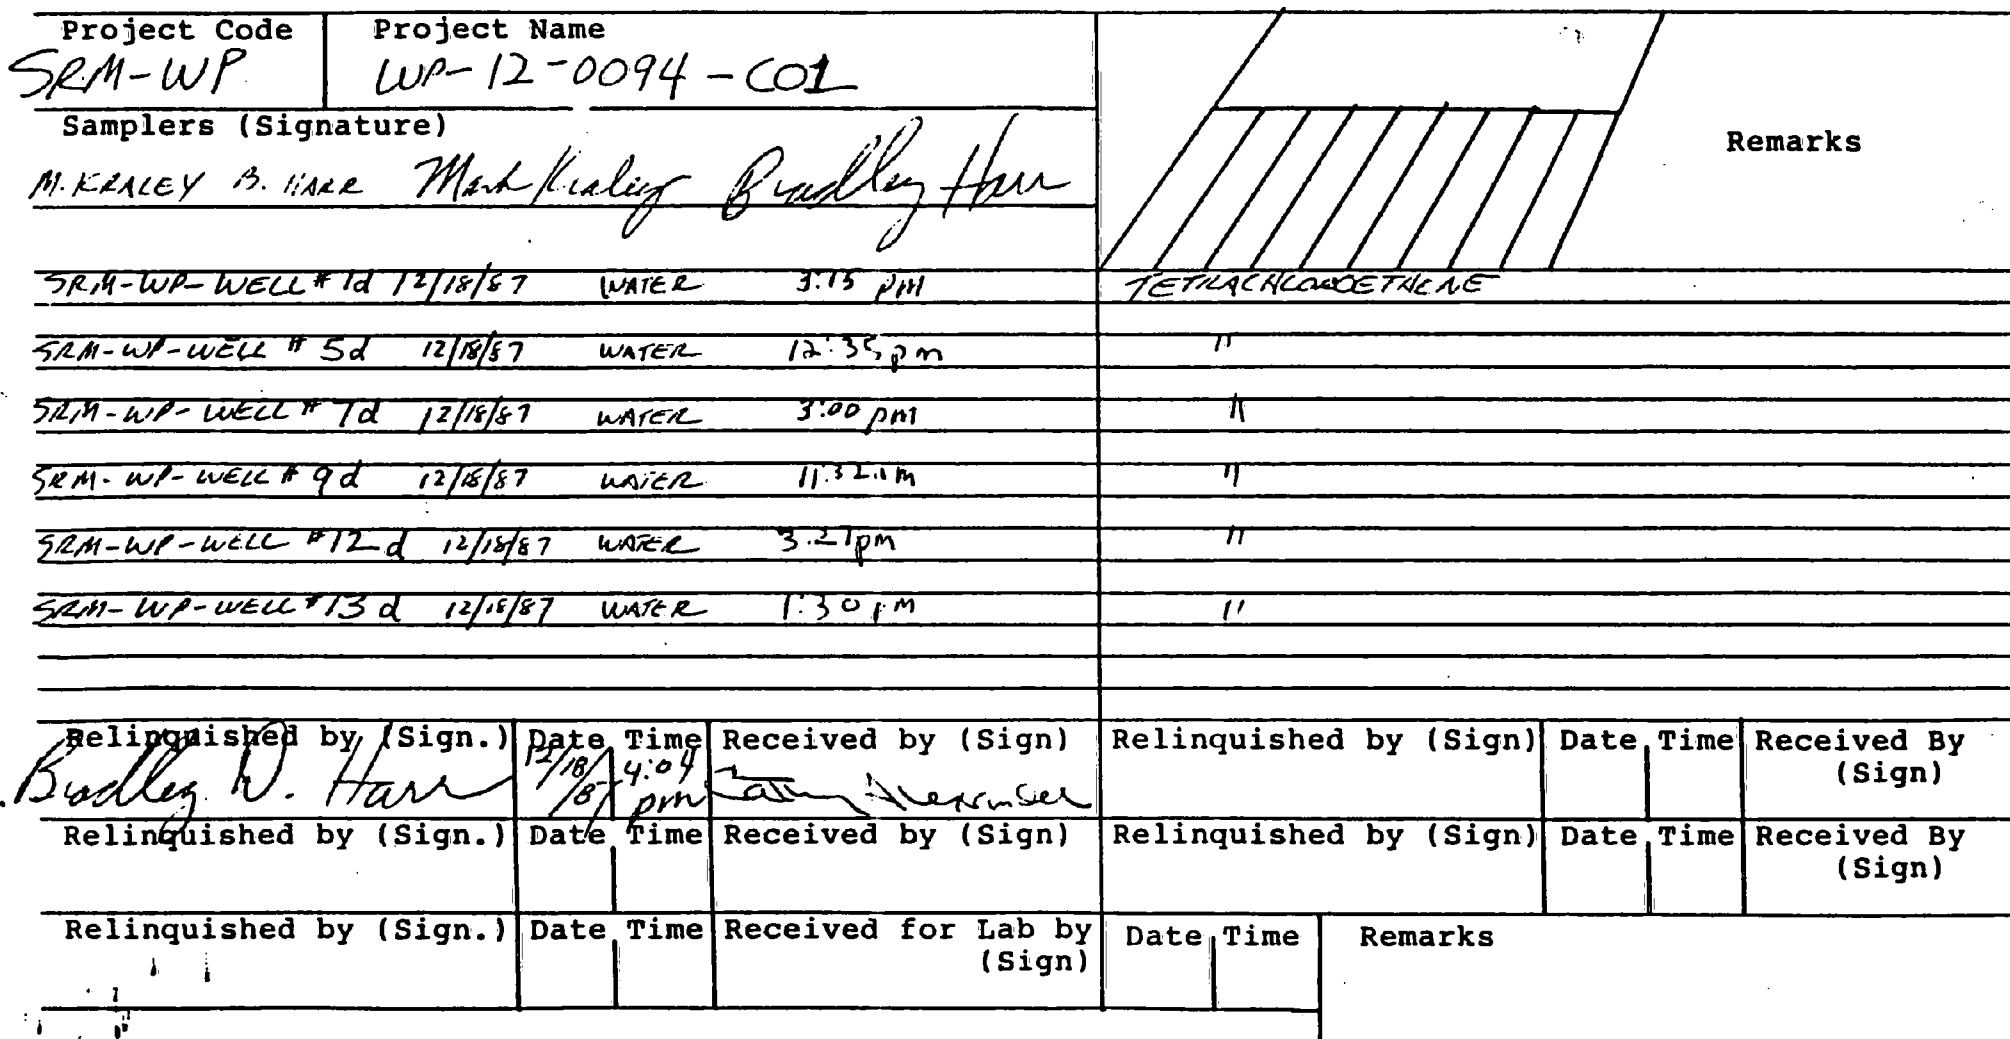 Project Code Project Name
SRM-WP WP-12-0094-C01
Samplers (Signature)
Remarks
M. KRALEY B. HARR Mark Kraley Bradley Harr
SRM-WP-WELL #1d 12/18/87 WATER 3:15 pm TETRACHLOROETHENE
SRM-WP-WELL # 5d 12/18/87 WATER 12:35 pm "
SRM-WP-WELL # 7d 12/18/87 WATER 3:00 pm "
SRM-WP-WELL # 9d 12/18/87 WATER 11:32 "
SRM-WP-WELL #12d 12/18/87 WATER pm "
SRM-WP-WELL #13d 12/18/87 WATER 1:30 pm "
Relinquished by (Sign.) Date Time Received by (Sign) Relinquished by (Sign) Date Time Received By
(Sign)
Bradley W. Harr 12/18/87 4:04 pm
Relinquished by (Sign.) Date Time Received by (Sign) Relinquished by (Sign) Date Time Received By
(Sign)
Relinquished by (Sign.) Date Time Received for Lab by Date Time Remarks
(Sign)